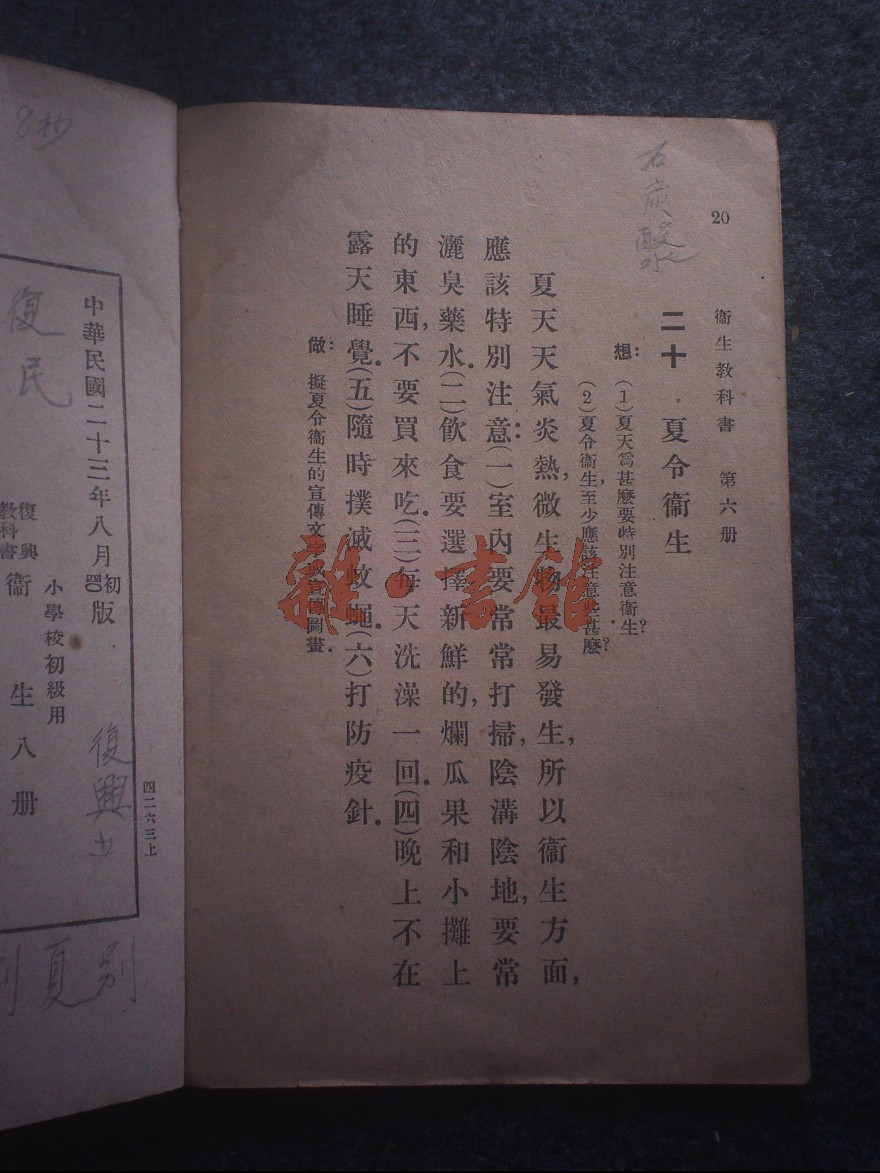 20
衞生教科書　第六册
二十　夏令衞生
想：(1)夏天爲甚麽要特別注意衞生？
(2)夏令衞生,至少應該注意些甚麽？
夏天天氣炎熱,微生物最易發生,所以衞生方面,
應該特別注意：(一)室內要常常打掃,陰溝陰地,要常
灑臭藥水。(二)飲食要選擇新鮮的,爛瓜果和小攤上
的東西,不要買來吃。(三)每天洗澡一回。(四)晚上不在
露天睡覺。(五)隨時撲滅蚊蠅。(六)打防疫針。
做：擬夏令衞生的宣傳文字或宣傳圖畫。
雜·書館
酸水
8抄
四二六三上
中華民國二十三年八月初版
小學校初級用
復興教科書 衞生八册
復民
復興
夏別